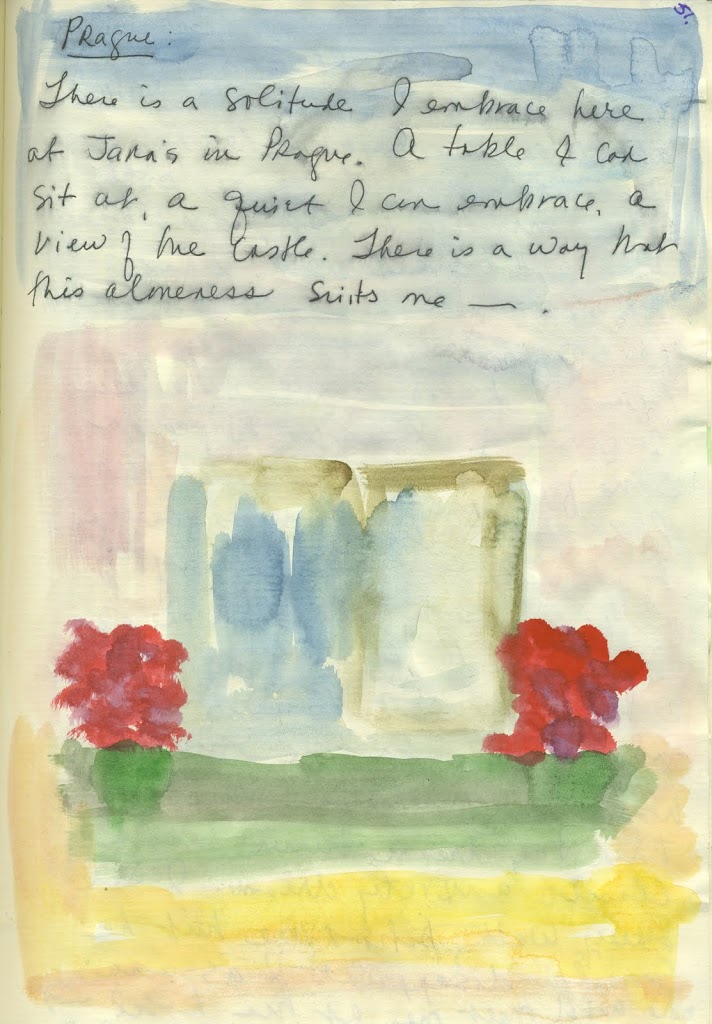 51.
Prague:
There is a solitude I embrace here
at Jana's in Prague. A table I can
sit at, a quiet I can embrace, a
view of the Castle. There is a way that
this aloneness suits me — .